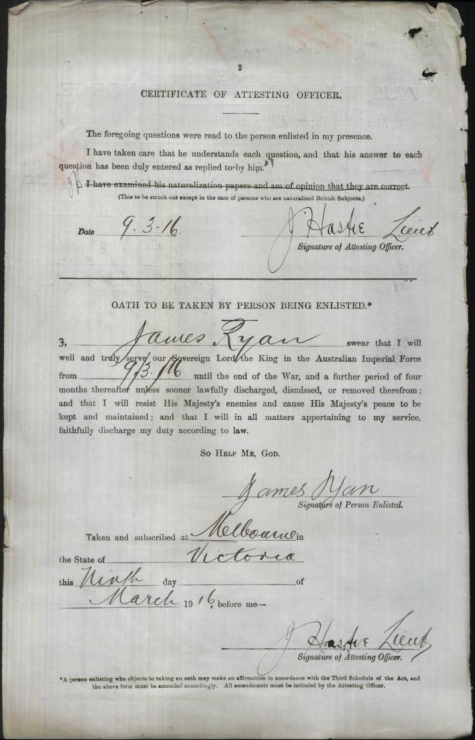 2
CERTIFICATE OF ATTESTING OFFICER.
The foregoing questions were read to the person enlisted in my presence.
I have taken care that he understands each question, and that his answer to each
question has been duly entered as replied to by him.
I have examined his naturalization papers and am of opinion that they are correct.
(This to be struck out except in the case of persons who are naturalized British Subjects.)
Date 9.3.16. J Hastie Lieut
Signature of Attesting Officer.
OATH TO BE TAKEN BY PERSON BEING ENLISTED.*
3, James Ryan swear that I will
well and truly serve our Sovereign Lord the King in the Australian Imperial Force
from 9/3/16 until the end of the War, and a further period of four
months thereafter unless sooner lawfully discharged, dismissed, or removed therefrom;
and that I will resist His Majesty's enemies and cause His Majesty's peace to be
kept and maintained; and that I will in all matters appertaining to my service,
faithfully discharge my duty according to law.
SO HELP ME, GOD.
James Ryan
Signature of Person Enlisted.
Taken and subscribed at Melbourne in
the State of Victoria
this Ninth day of
March 1916, before me—
J Hastie Lieut
Signature of Attesting Officer.
*A person enlisting who objects to taking an oath may make an affirmation in accordance with the Third Schedule of the Act, and
the above form must be amended accordingly. All amendments must be initialed by the Attesting Officer.